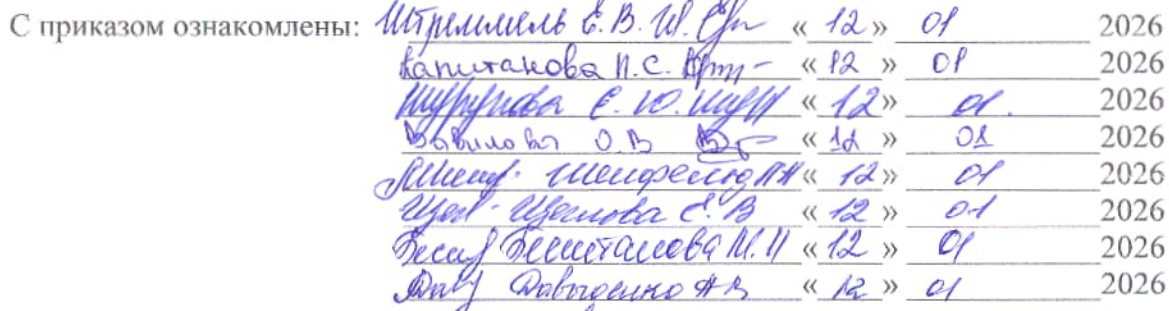 С приказом ознакомлены: Штреммель Е.В. «12» 01 2026
Капитанова П.С. «12» 01 2026
Е.Ю. «12» 01. 2026
Вавилова О.В «12» 01 2026
«12» 01 2026
Щеглова Е.В «12» 01 2026
М.П «12» 01 2026
Давыденко А В «12» 01 2026